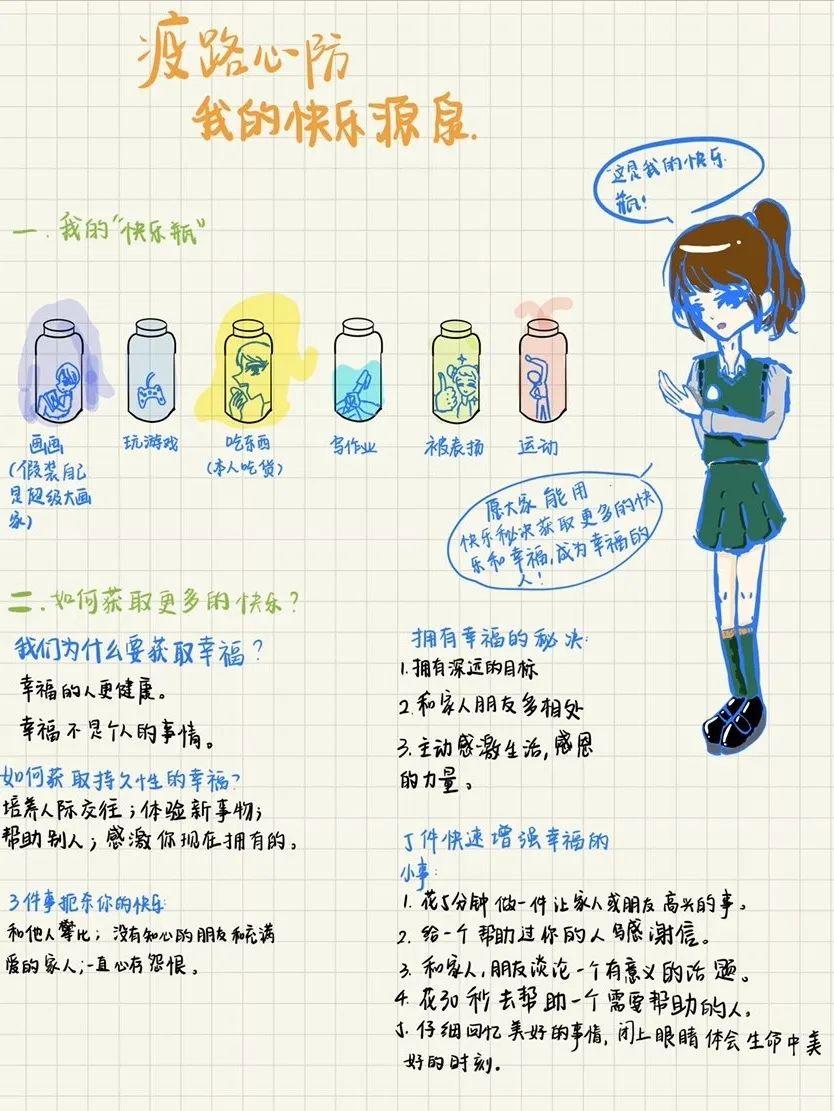 疫路心防
我的快乐源泉.
这是我的快乐
瓶!
一.我的“快乐瓶”
画画
(假装自己
是超级大画
家)
玩游戏
吃东西
(本人吃货)
写作业
被表扬
运动
愿大家能用
快乐秘诀获取更多的快
乐和幸福,成为幸福的
人!
二.如何获取更多的快乐?
我们为什么要获取幸福?
幸福的人更健康。
幸福不是个人的事情。
如何获取持久性的幸福?
培养人际交往;体验新事物;
帮助别人;感激你现在拥有的。
3件事扼杀你的快乐:
和他人攀比;没有知心的朋友和充满
爱的家人;一直心存怨恨。
拥有幸福的秘诀:
1.拥有深远的目标
2.和家人朋友多相处
3.主动感激生活,感恩
的力量。
5件快速增强幸福的
小事:
1.花5分钟做一件让家人或朋友高兴的事。
2.给一个帮助过你的人写感谢信。
3.和家人,朋友谈论一个有意义的话题。
4.花30秒去帮助一个需要帮助的人。
5.仔细回忆美好的事情,闭上眼睛体会生命中美
好的时刻。